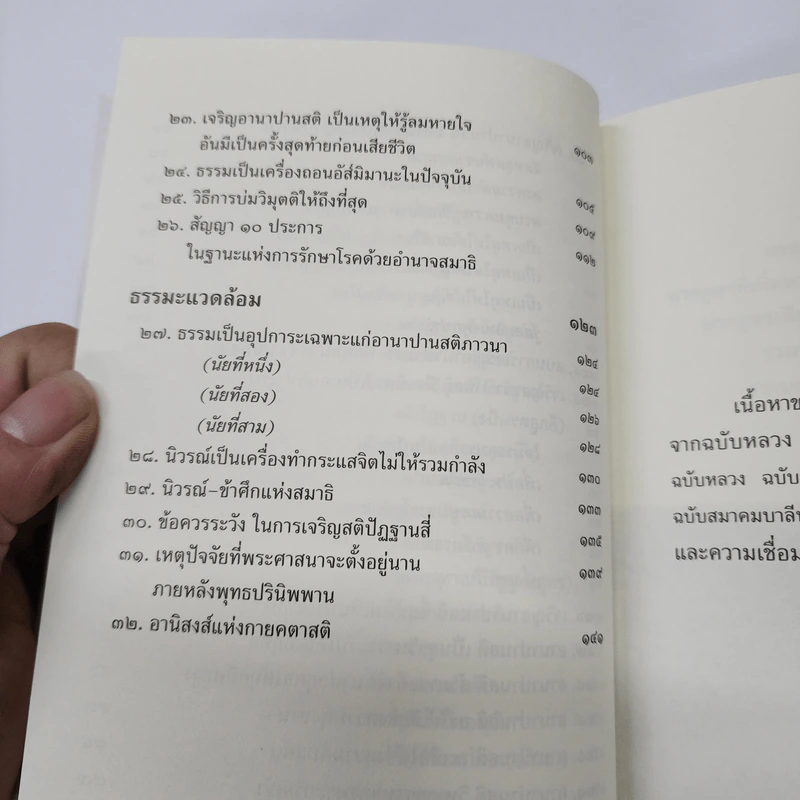 ๒๓. เจริญอานาปานสติ เป็นเหตุให้รู้ลมหายใจ
อันมีเป็นครั้งสุดท้ายก่อนเสียชีวิต ๑๐๓
๒๔. ธรรมเป็นเครื่องถอนอัส๎มิมานะในปัจจุบัน ๑๐๕
๒๕. วิธีการบ่มวิมุตติให้ถึงที่สุด ๑๐๙
๒๖. สัญญา ๑๐ ประการ
ในฐานะแห่งการรักษาโรคด้วยอำนาจสมาธิ ๑๑๒
ธรรมะแวดล้อม ๑๒๓
๒๗. ธรรมเป็นอุปการะเฉพาะแก่อานาปานสติภาวนา ๑๒๔
(นัยที่หนึ่ง) ๑๒๔
(นัยที่สอง) ๑๒๖
(นัยที่สาม) ๑๒๘
๒๘. นิวรณ์เป็นเครื่องทำกระแสจิตไม่ให้รวมกำลัง ๑๓๐
๒๙. นิวรณ์–ข้าศึกแห่งสมาธิ ๑๓๓
๓๐. ข้อควรระวัง ในการเจริญสติปัฏฐานสี่ ๑๓๕
๓๑. เหตุปัจจัยที่พระศาสนาจะตั้งอยู่นาน
ภายหลังพุทธปรินิพพาน ๑๓๙
๓๒. อานิสงส์แห่งกายคตาสติ ๑๔๑
เนื้อหาข
จากฉบับหลวง
ฉบับหลวง ฉบับ
ฉบับสมาคมบาลี
และความเชื่อม